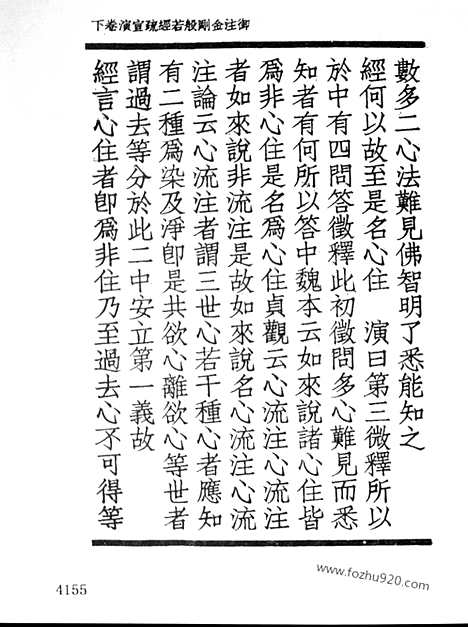 御注金剛般若經疏宣演卷下
數多二心法難見佛智明了悉能知之
經何以故至是名心住　演曰第三微釋所以
於中有四問答徵釋此初徵問多心難見而悉
知者有何所以答中魏本云如來說諸心住皆
爲非心住是名爲心住貞觀云心流注心流注
者如來說非流注是故如來說名心流注心流
注論云心流注者謂三世心若干種心者應知
有二種爲染及淨卽是共欲心離欲心等世者
謂過去等分於此二中安立第一義故
經言心住者卽爲非住乃至過去心不可得等
4155
www.fozhu920.com